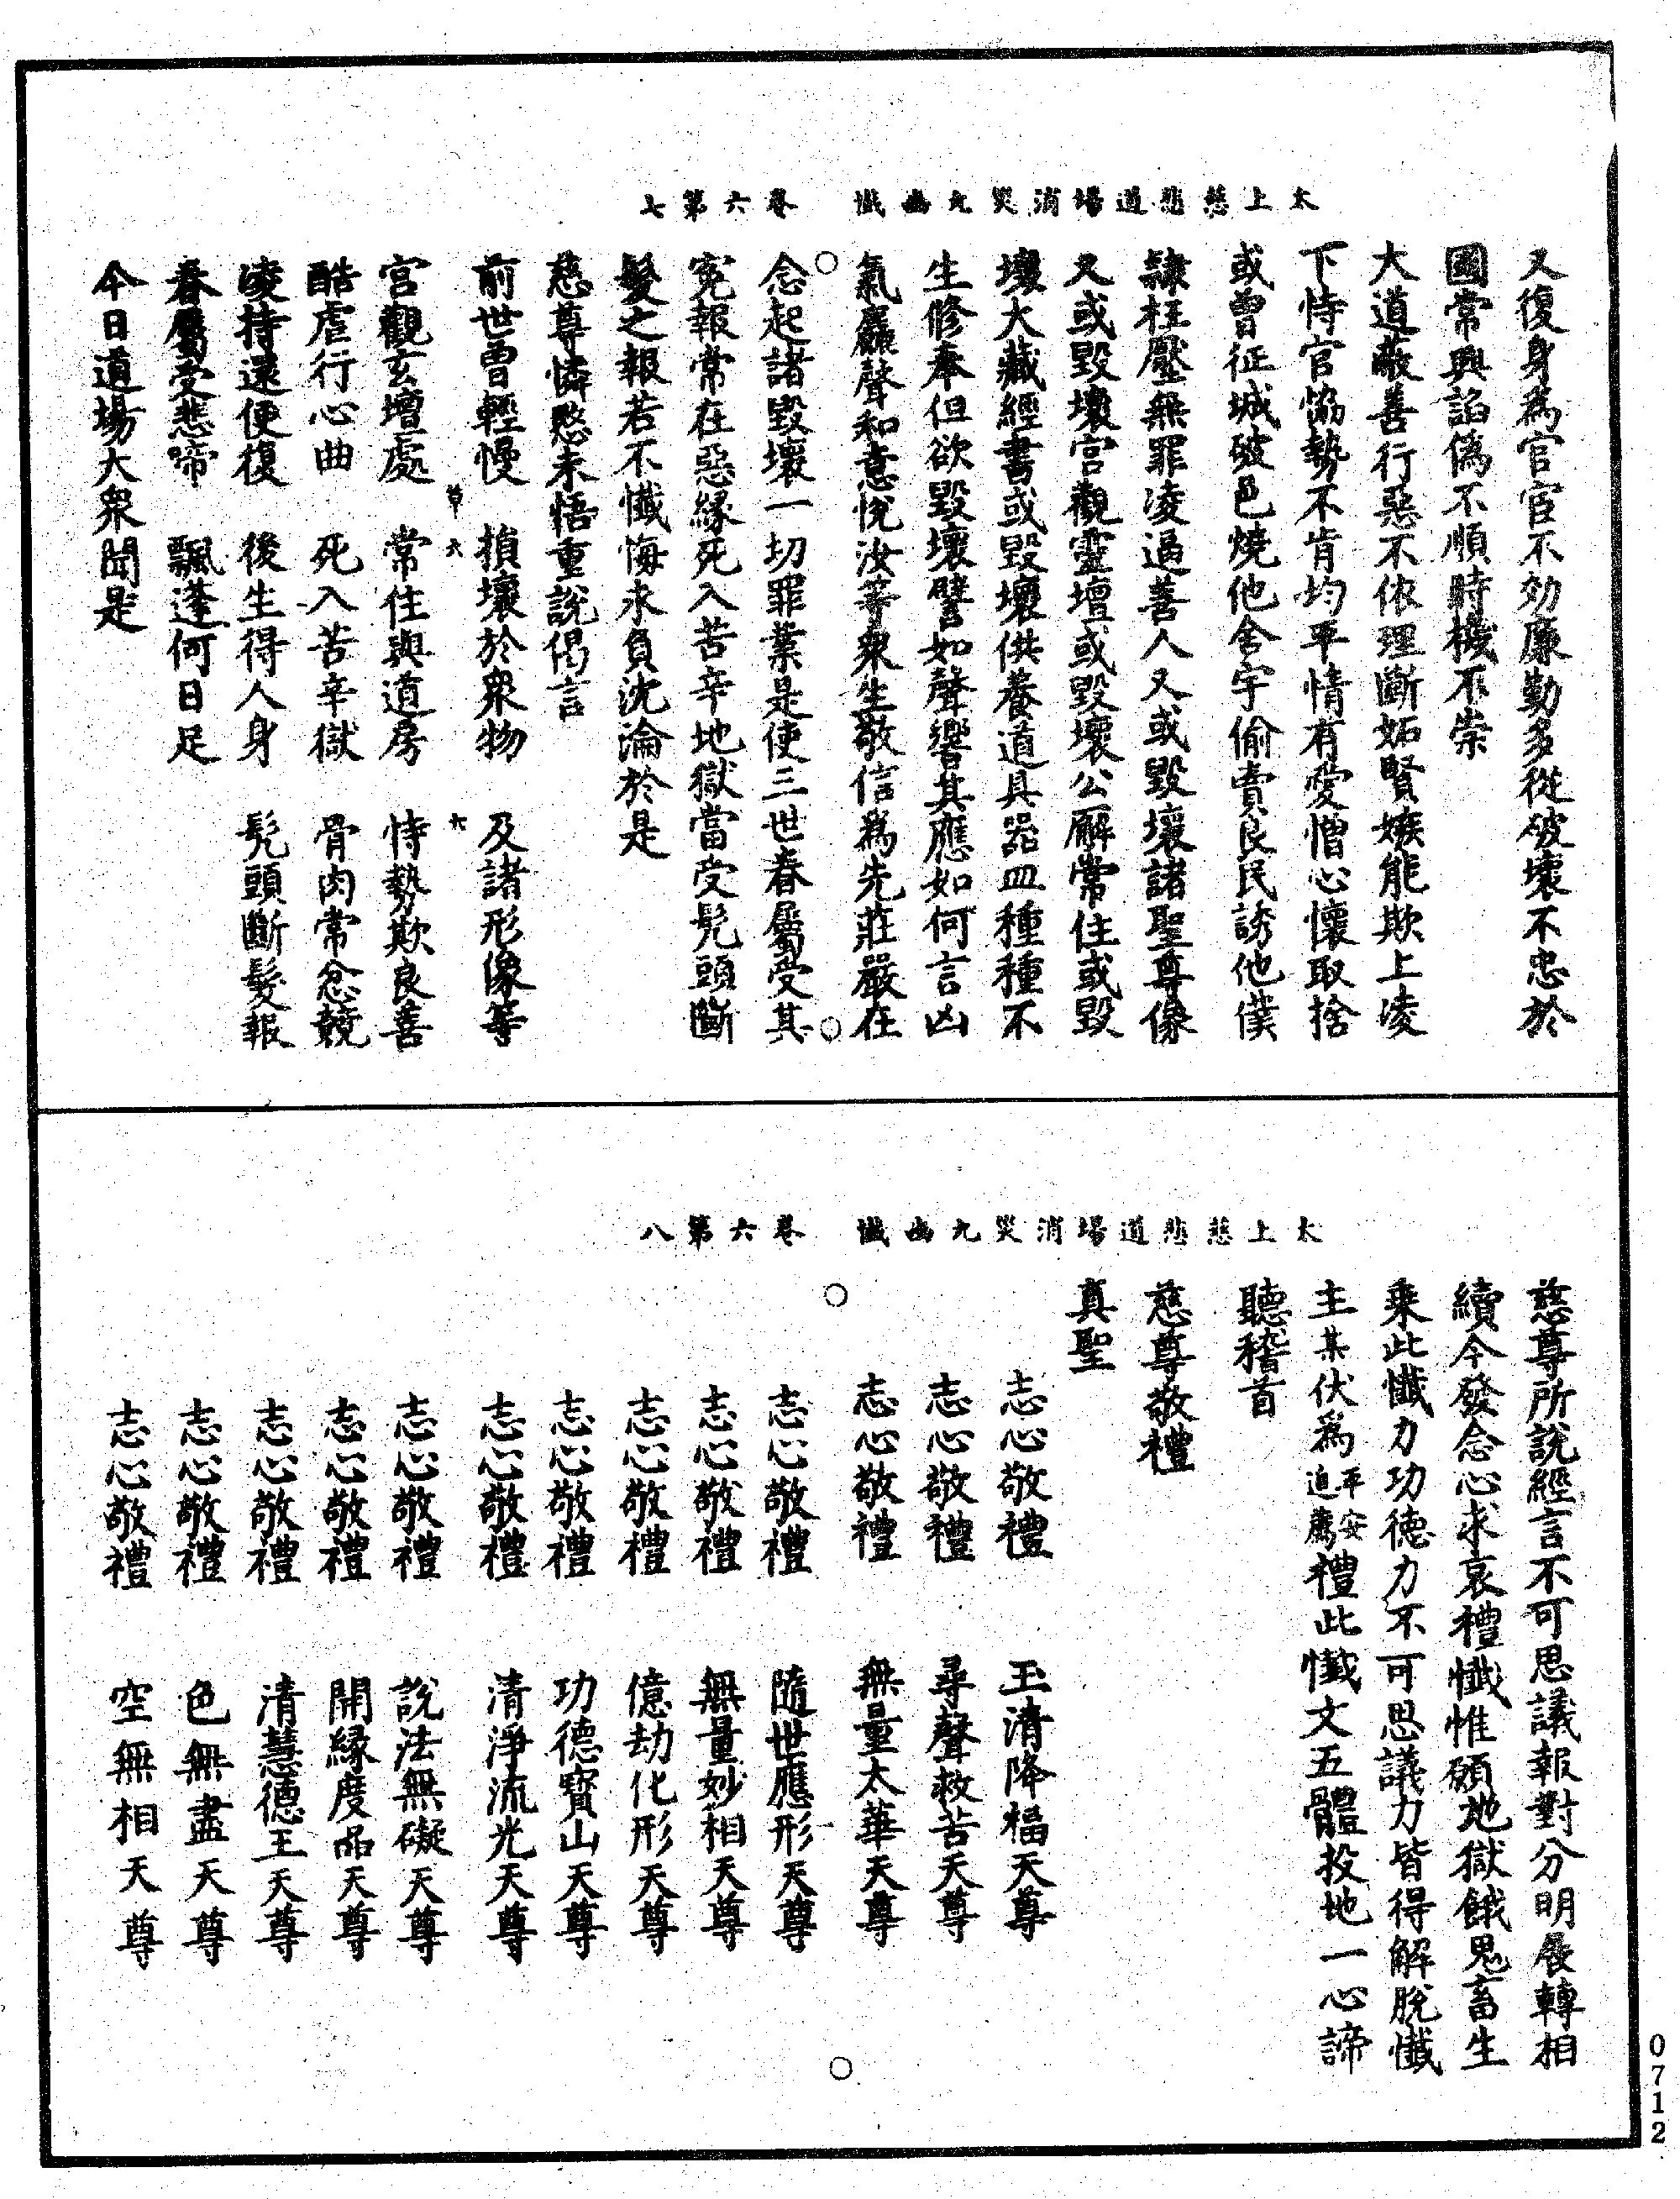 太上慈悲道場消災九幽懺　卷六第七
又復身為官官不効廉勤多從破壞不忠於
國常興諂偽不順時機不崇
大道蔽善行惡不依理斷妬賢嫉能欺上凌
下恃官恊勢不肯均平情有愛憎心懷取捨
或曾征城破邑燒他舍宇偷賣良民誘他僕
隷枉壓無罪凌逼善人又或毀壞諸聖尊像
又或毀壞宫觀靈壇或毀壞公廨常住或毀
壞大藏經書或毀壞供養道具器皿種種不
生修奉但欲毀壞譬如聲響其應如何言凶
氣麤聲和意悅汝等衆生敬信爲先莊嚴在
念起諸毀壞一切罪業是使三世眷屬受其
寃報常在惡緣死入苦辛地獄當受髠頭斷
髮之報若不懺悔永負沈淪於是
慈尊憐愍未悟重說偈言
前世曾輕慢　損壞於衆物　及諸形像等
草六　六
宫觀玄壇處　常住與道房　恃勢欺良善
酷虐行心曲　死入苦辛獄　骨肉常忿競
凌持還便復　後生得人身　髠頭斷髮報
眷屬受悲啼　飄蓬何日足
今日道場大衆聞是
太上慈悲道場消災九幽懺　卷六第八
慈尊所說經言不可思議報對分明展轉相
續今發念心求哀禮懺惟願地獄餓鬼畜生
乘此懺力功德力不可思議力皆得解脫懺
主某伏爲平安追薦禮此懺文五體投地一心諦
聽稽首
慈尊敬禮
真聖
志心敬禮　玉清降福天尊
志心敬禮　尋聲救苦天尊
志心敬禮　無量太華天尊
志心敬禮　隨世應形天尊
志心敬禮　無量妙相天尊
志心敬禮　億劫化形天尊
志心敬禮　功德寳山天尊
志心敬禮　清淨流光天尊
志心敬禮　說法無礙天尊
志心敬禮　開緣度品天尊
志心敬禮　清慧德王天尊
志心敬禮　色無盡天尊
志心敬禮　空無相天尊
0712